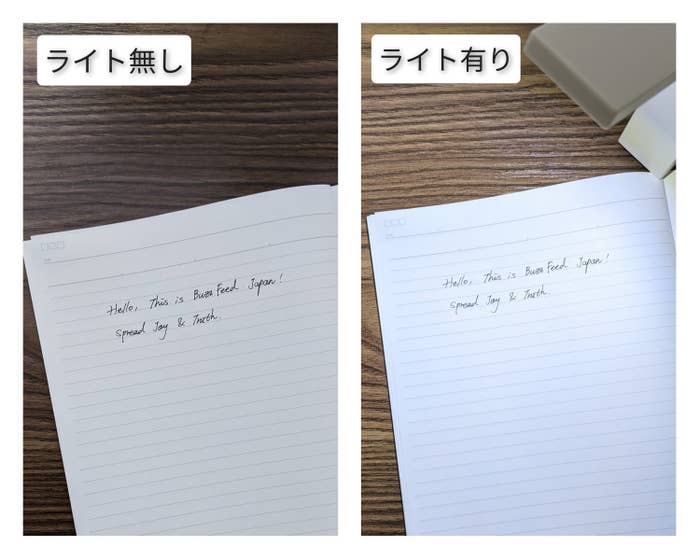 ライト無し
Hello, This is BuzzFeed Japan!
Spread Joy & Truth.
ライト有り
Hello, This is BuzzFeed Japan!
Spread Joy & Truth.